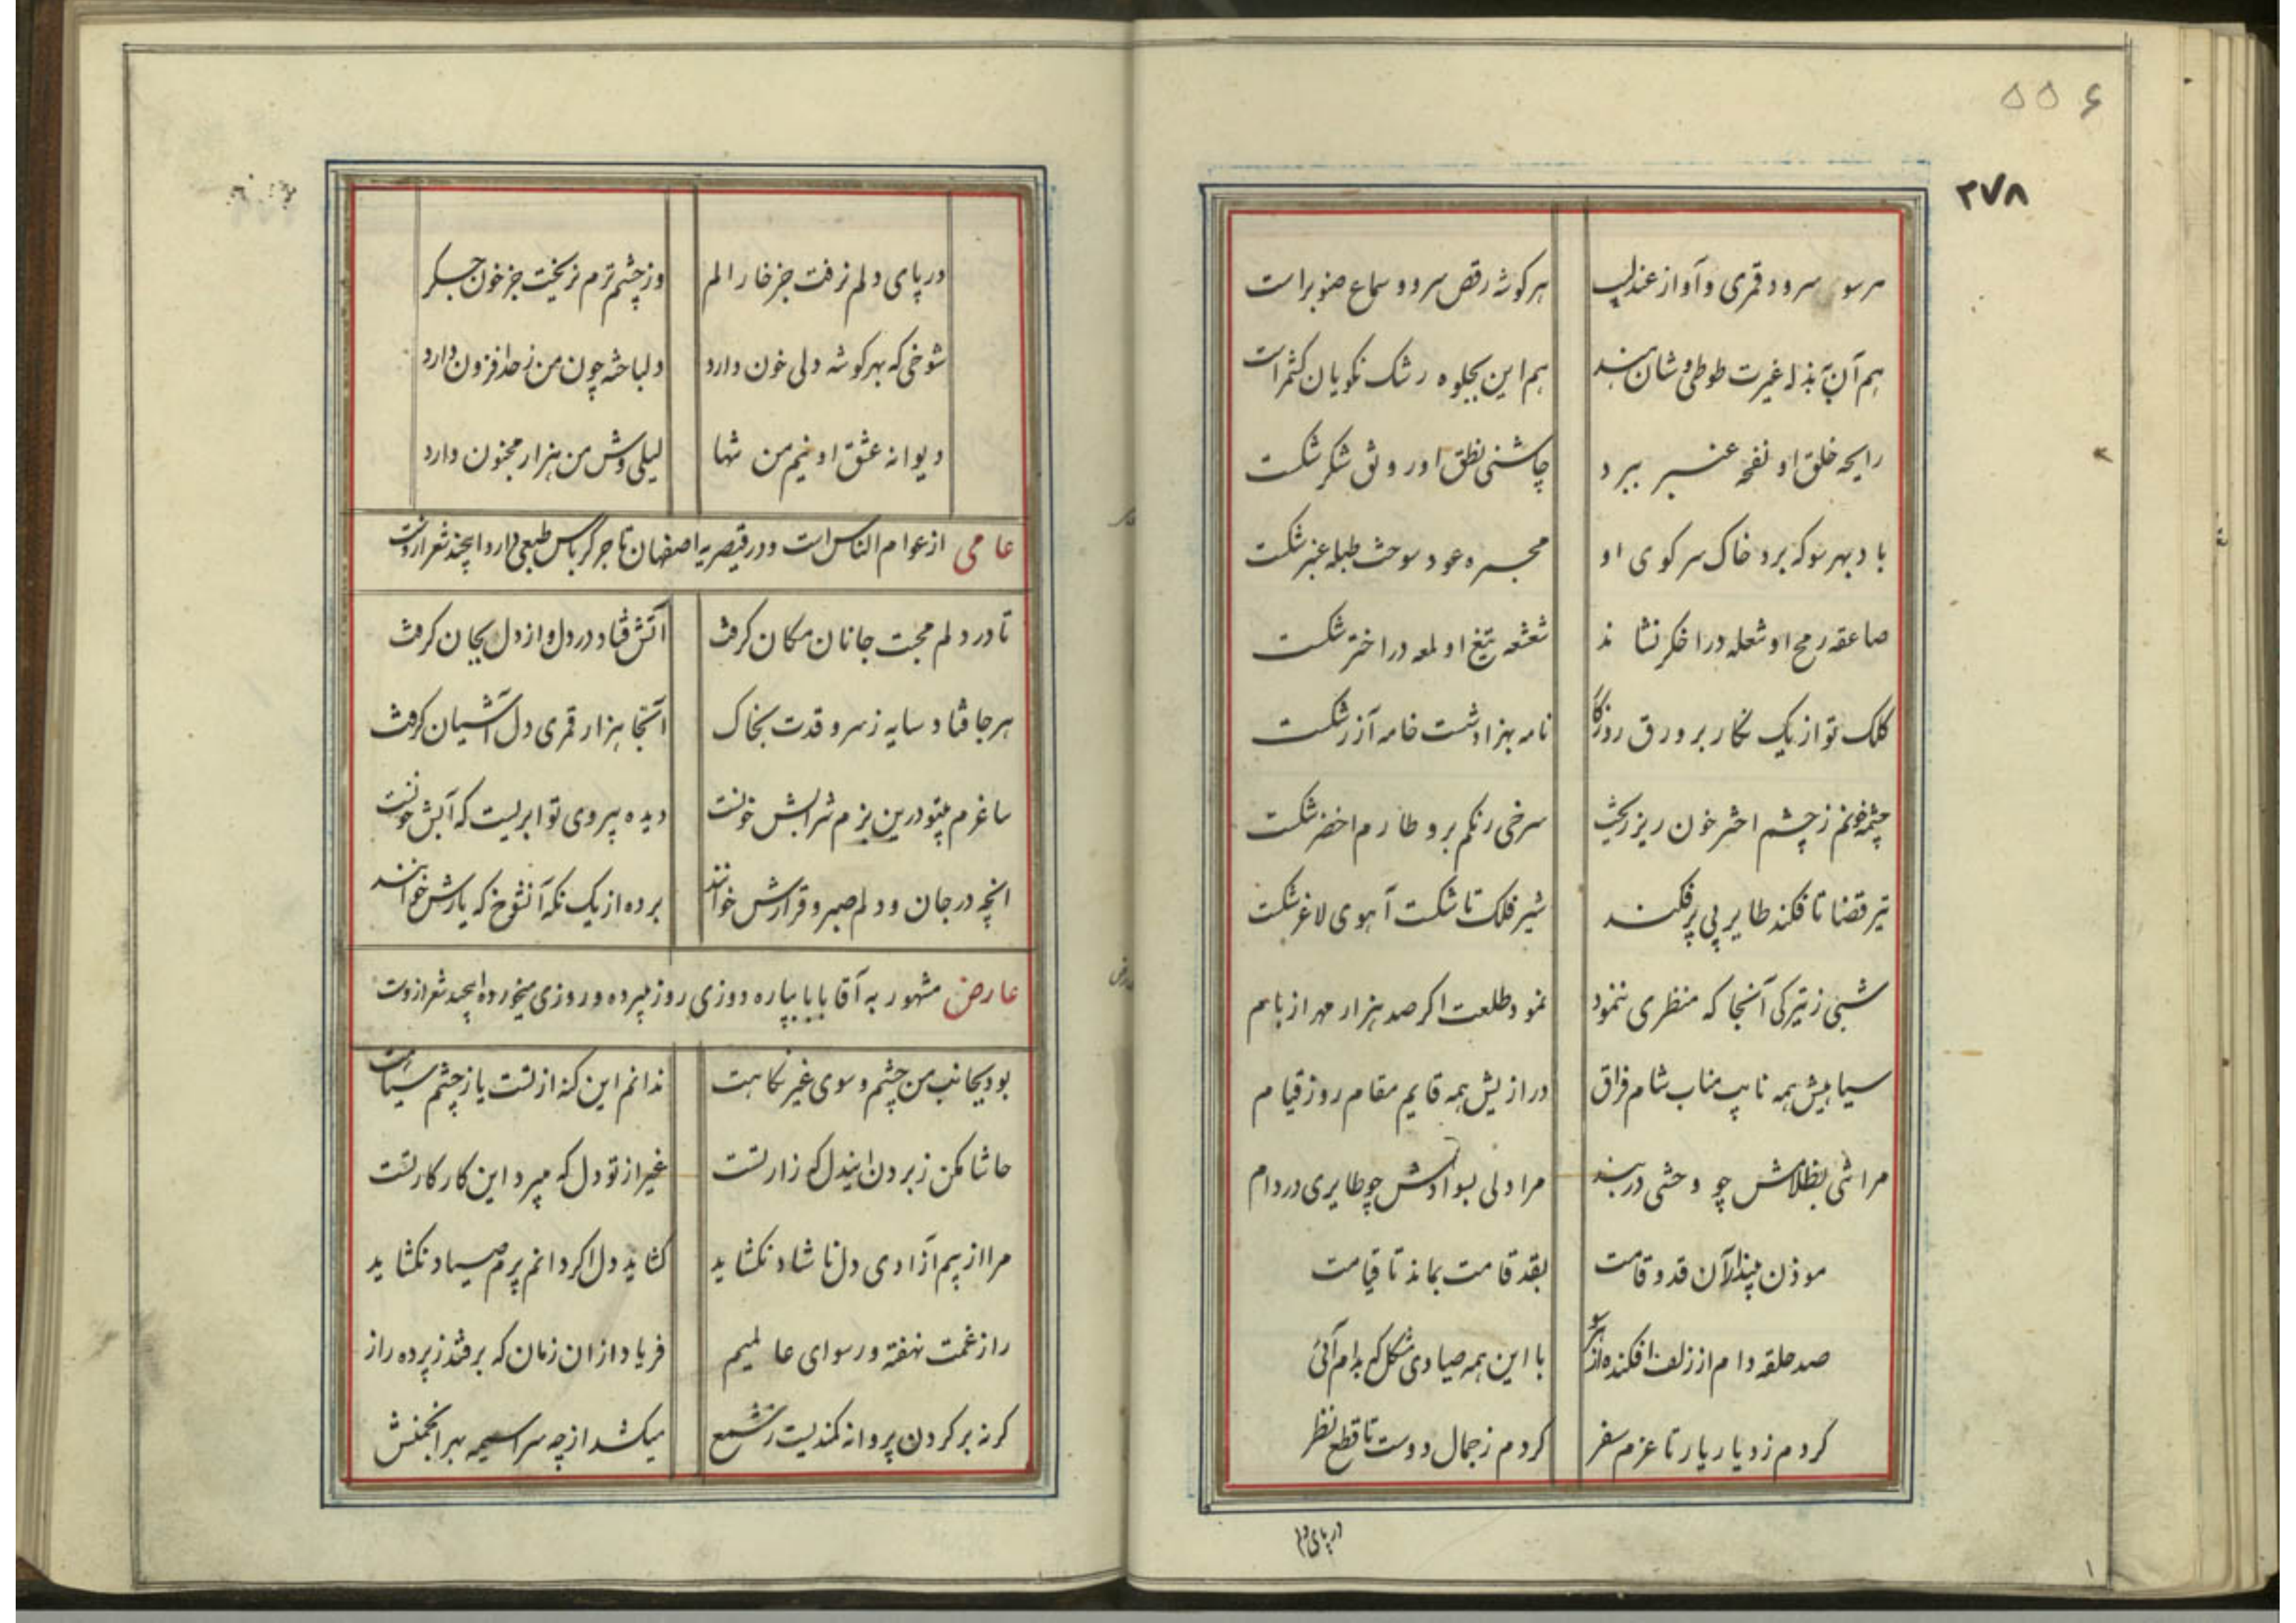 ۵۵۶
۲۷۸
هر سو سرود قمری و آواز عندلیب هر گوشه رقص سرو و سماع صنوبر است
هم آن بذله غیرت طوطی وشان هند هم این بجلوه رشک نکویان کشمر است
رایحه خلق او نفحه عنبر ببرد چاشنی نطق او رونق شکر شکست
باد بهر سو که برد خاک سر کوی او مجمره عود سوخت طبله عنبر شکست
صاعقه رمح او شعله در اخگر نشاند شعشعه تیغ او لمعه در اختر شکست
کلک تو از یک نگار بر ورق روزگار نامه بهزاد شست خامه آزر شکست
چشمه خونم ز چشم اختر خون ریز ریخت سرخی رنگم برو طارم اخضر شکست
تیر قضا تا فکند طایر بی پر فکند شیر فلک تا شکست آهوی لاغر شکست
شبی ز تیرگی آنجا که منظری ننمود نمود طلعت اگر صد هزار مهر از بام
سیاهیش همه نایب مناب شام فراق درازیش همه قایم مقام روز قیام
مرا شبی بظلامش چو وحشی در بند مرا دلی بسوادش چو طایری در دام
موذن بیند آن قد و قامت بقد قامت بماند تا قیامت
صد حلقه دام از زلف افکنده از هر سو با این همه صیادی مشکل که بدام آئی
کردم ز دیار یار تا عزم سفر کردم ز جمال دوست تا قطع نظر
در پای دلم
در پای دلم نرفت جز خار الم وز چشم ترم نریخت جز خون جگر
شوخی که بهر گوشه دلی خون دارد دلباخته چون من ز حد افزون دارد
دیوانه عشق او نیم من تنها لیلی وش من هزار مجنون دارد
عامی از عوام الناس است و در قیصریه اصفهان تاجر کرباس طبعی دارد اینچند شعر از اوست
تا در دلم محبت جانان مکان گرفت آتش فتاد در دل و از دل بجان گرفت
هر جا فتاد سایه ز سرو قدت بخاک آنجا هزار قمری دل آشیان گرفت
ساغرم بیتو درین بزم شرابش خونست دیده بیروی تو ابریست که آبش خونست
انچه در جان و دلم صبر و قرارش خوانند برده از یک نگه آنشوخ که یارش خوانند
عارض مشهور به آقا بابا بپاره دوزی روز میبرده و روزی میخورده اینچند شعر ازوست
بود بجانب من چشم و سوی غیر نگاهت ندانم این گنه از تست یا ز چشم سیاهت
حاشا مکن ز بردن ایندل که زار تست غیر از تو دل که میبرد این کار کار تست
مرا از بیم آزادی دل ناشاد نگشاید گشاید دل اگر دانم پرم صیاد نگشاید
راز غمت نهفته و رسوای عالمیم فریاد ازان زمان که بر افتد ز پرده راز
گر نه بر گردن پروانه کمندیست ز شمع میکشد از چه سراسیمه بهر انجمنش